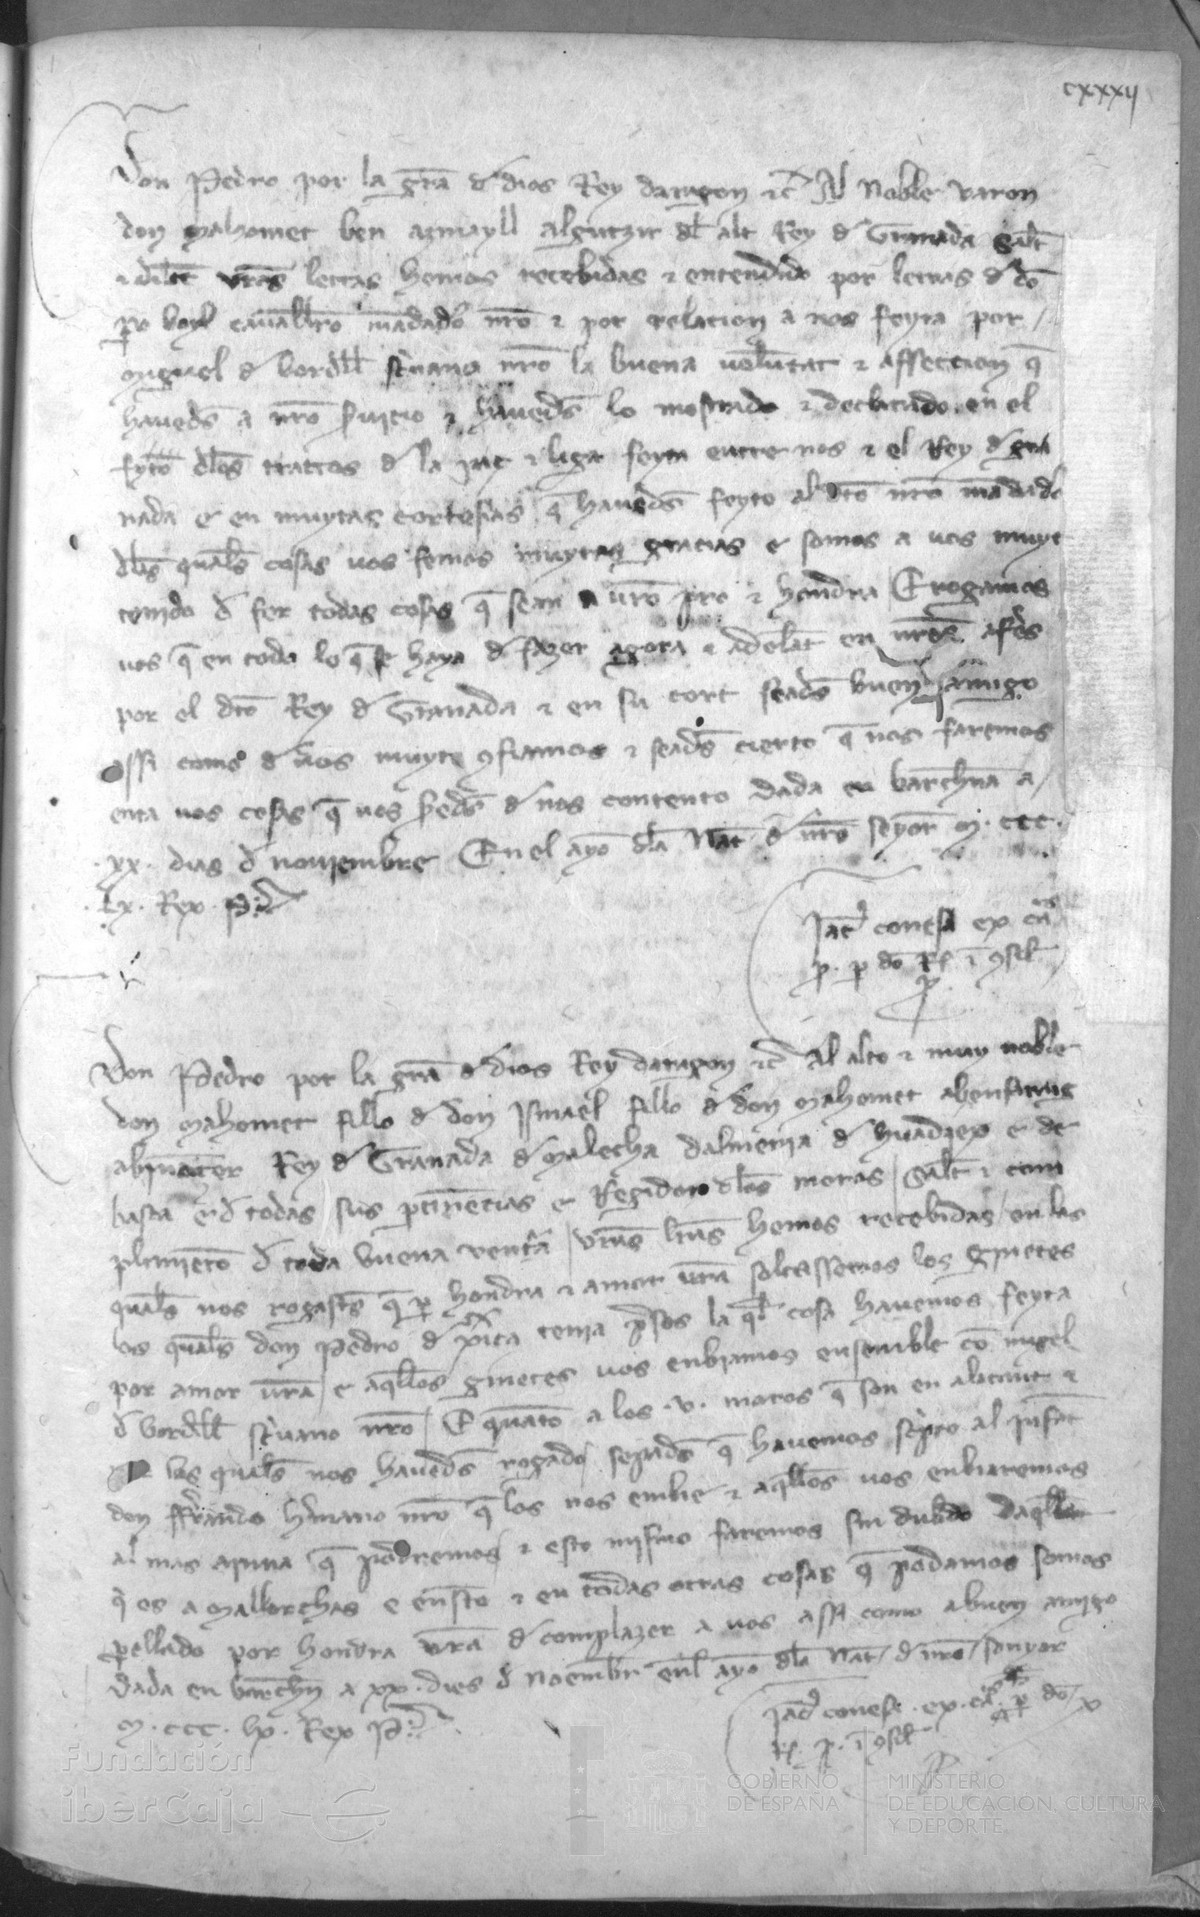 cxxxij
Don Pedro por la gra d dios Rey daragon etc Al Noble varon
don Mahomet ben azmayll algutzir dl alt Rey d Granada salt
e dilect vras letras hemos recebidas e entendido por letras d do
po boyl cavallro madado nro e por relacion a nos feyta por
Miguel d bordell scrivano nro la buena volutat e affeccion q
haveds a nro servicio e haveds lo mostrado e declarado en el
feyto dlos trattos d la paz e liga feyta entre nos e el Rey d gra
nada e en muytas cortesias q haveds feyto al dto nro madado
dlas quals cosas vos femos muytas gracias e somos a vos muyt
tenido d fer todas cosas q sean a vro pro e hondra E rogamos
vos q en todo lo q se haya d fazer agora e adelat en nros afers
por el dto Rey d Granada e en su cort seads buen amigo
assi como d vos muyto confiamos e seads cierto q nos faremos
enta vos cosas q vos sereds d nos contento dada en barchna a
xx dias d noviembre En el ayo dla Nat d nro seyor M ccc
Lx Rex P
Jac conesa ex
p p do R i consil
p
Don Pedro por la gra d dios Rey daragon etc Al alto e muy noble
don Mahomet fillo d don Ismael fillo d don Mahomet abenfarag
abinacer Rey d Granada d Malecha dalmeria d Huadiex e de
basta e d todas sus ptinecias e Regidor dlos moros salt e com
plimieto d toda buena ventra vras lras hemos recebidas en las
quals nos rogasts q p hondra e amor vra soltassemos los ginetes
los quals don Pedro d xica tenia psos la ql cosa havemos feyta
por amor vra e aqllos ginetes vos enbiamos ensemble co migel
d bordell scrivano nro E quato a los v moros q son en alacant e
por los quals nos haveds rogado sepads q havemos scripto al infat
don ffrrando hrmano nro q los nos embie e aqllos vos enbiaremos
al mas ayna q podremos e esto mismo faremos sin dubdo daqll
q es a Mallorchas e en sto e en todas otras cosas q podamos somos
pellado por hondra vra d complazer a vos assi como a buen amigo
dada en barchn a xx dies d Noembr enl ayo dla Nat d nro senyor
M ccc lx Rex P
Jac conesa ex p do
R p i consil
Fundación
iberCaja
GOBIERNO
DE ESPAÑA
MINISTERIO
DE EDUCACIÓN, CULTURA
Y DEPORTE